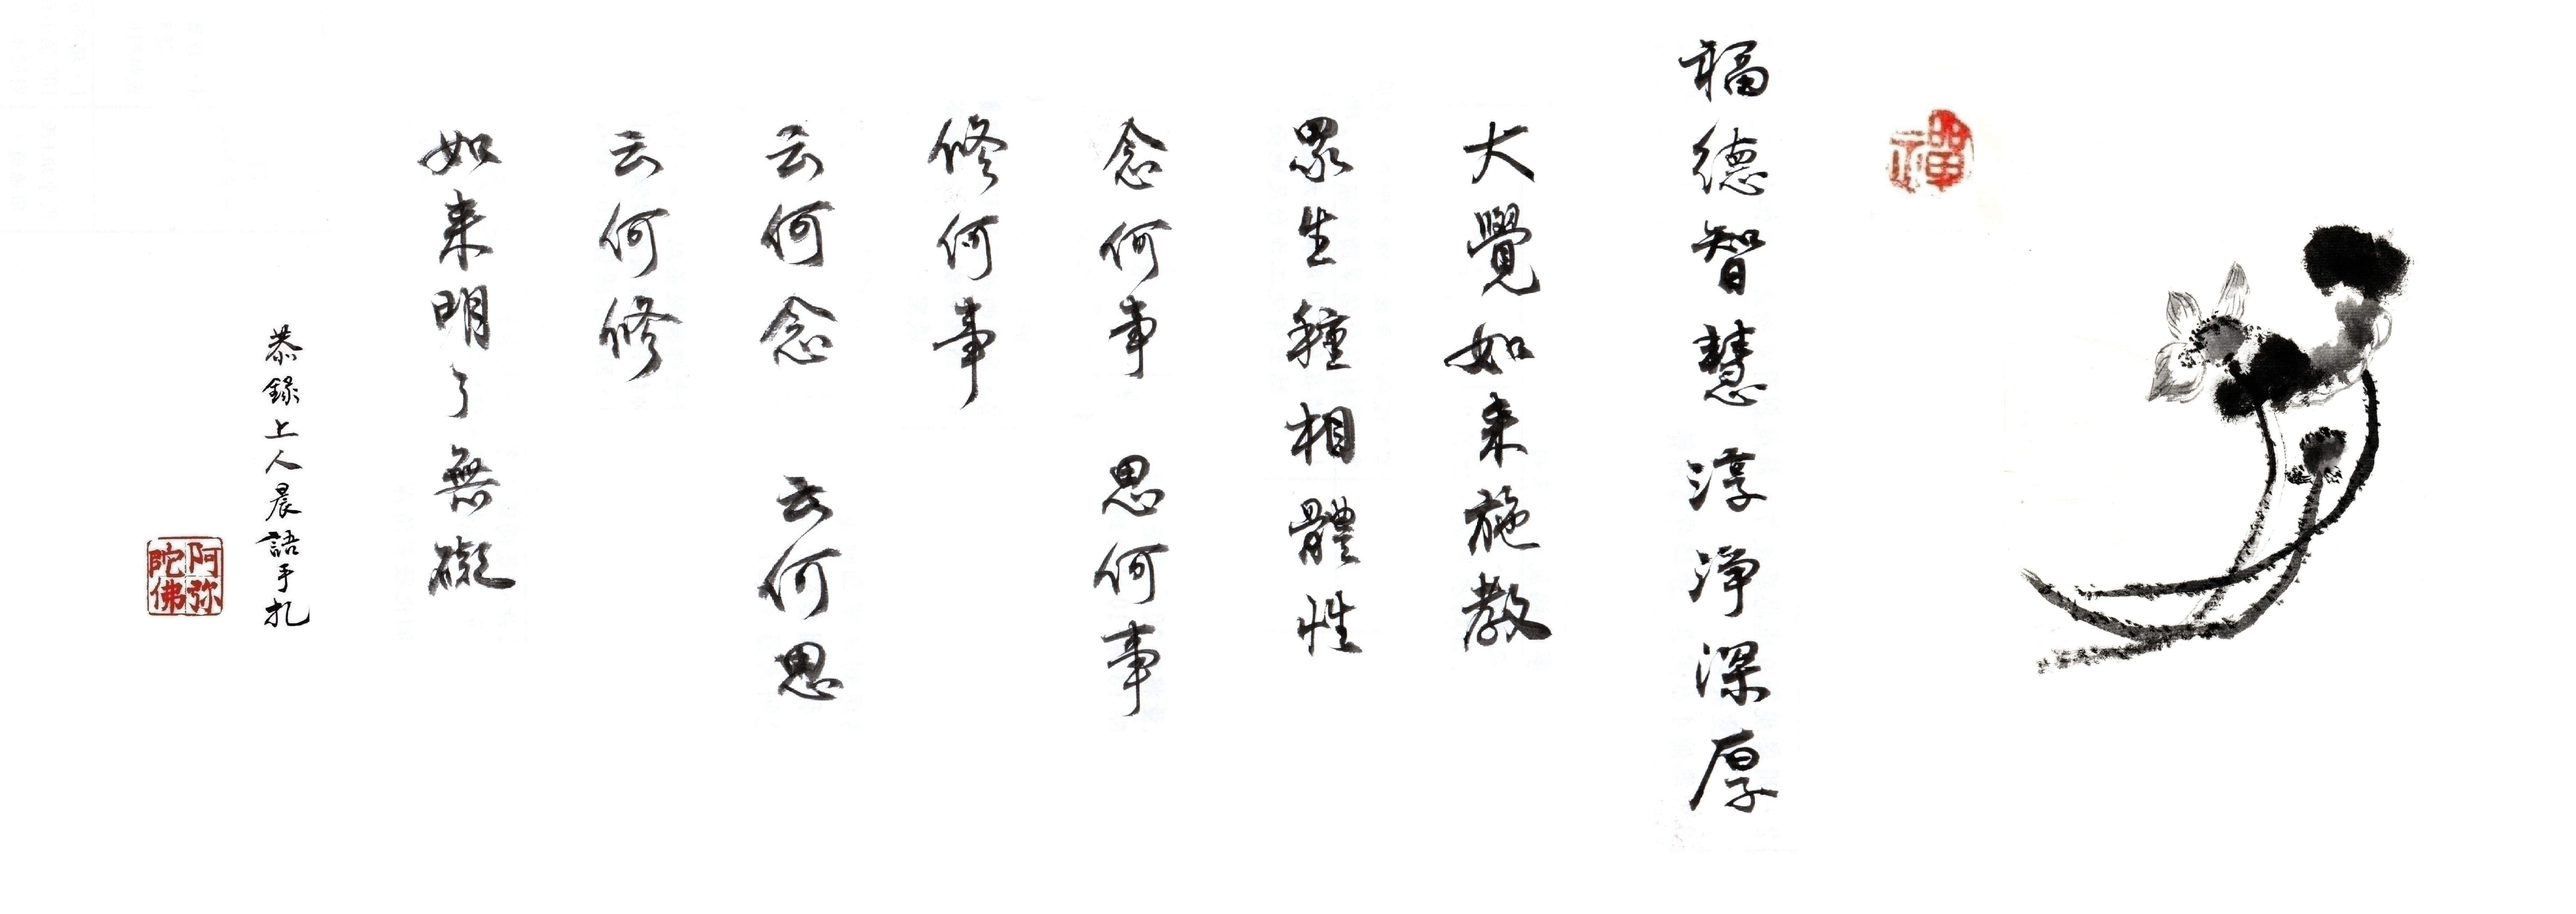 禪
福德智慧 淳淨深厚
大覺如来施教
眾生種種相體性
念何事 思何事
修何事
云何念 云何思
云何修
如来明了無礙
恭錄上人晨語手札
阿弥陀佛